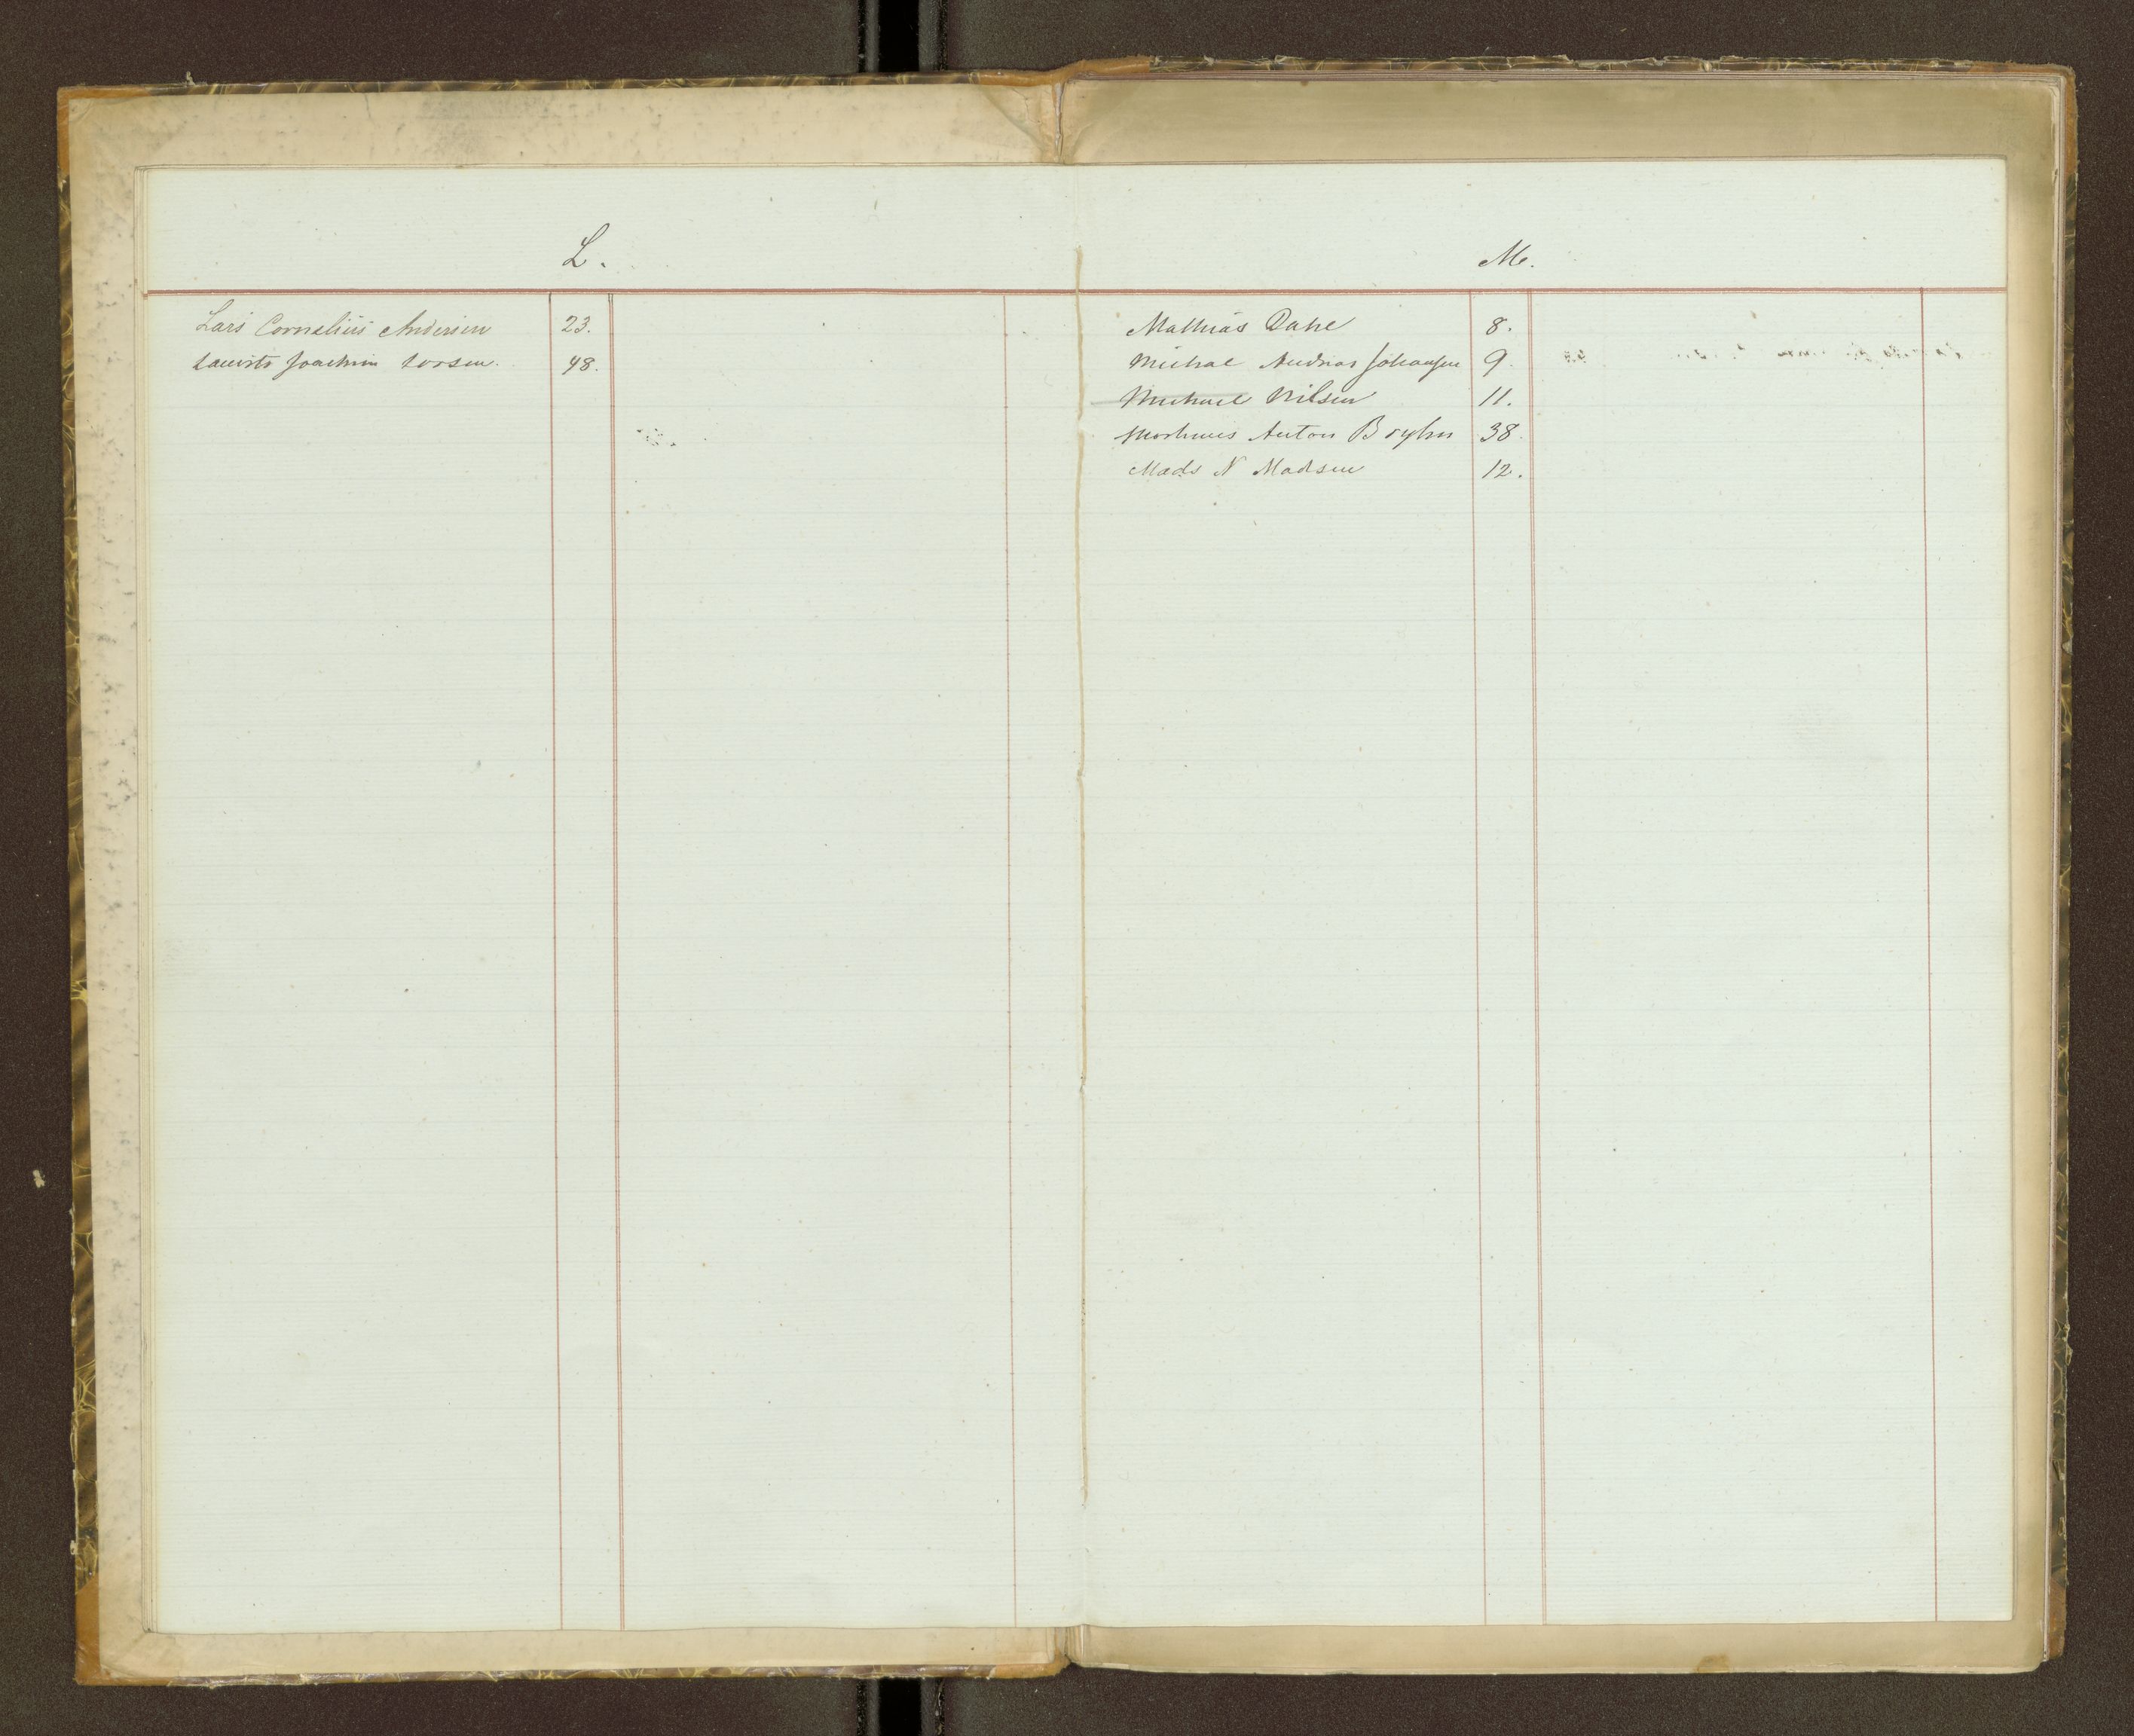 L.
Lars Cornelius Andersen 23.
Laurits Joachim Larsen. 48.
M.
Mathias Dahl 8.
Michal Andreas Johansen 9.
Michael Nilsen 11.
Anton 38.
Mads N Madsen 12.